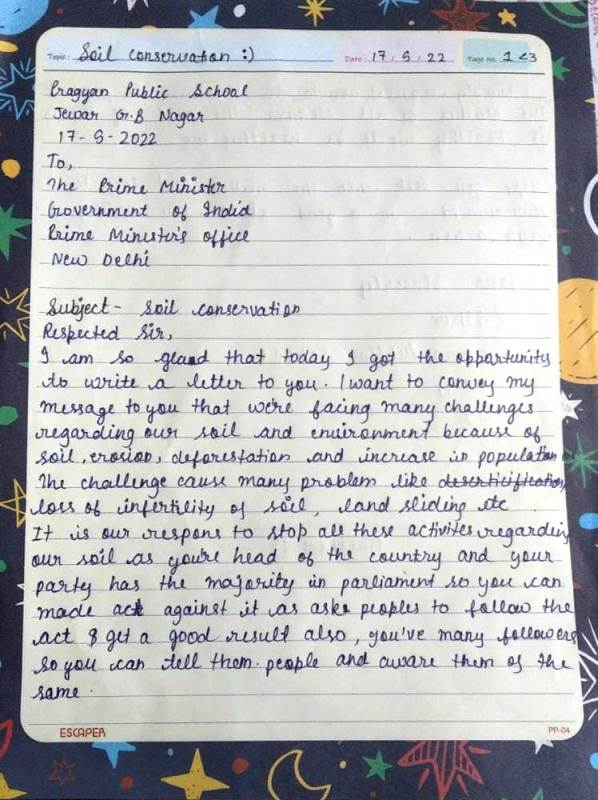 Topic: Soil conservation :) Date: 17 / 5 / 22 Page No. 1 <3
Pragyan Public School
Jewar G.B Nagar
17-5-2022
To,
The Prime Minister
Government of India
Prime Minister's office
New Delhi
Subject - Soil conservation
Respected Sir,
I am so glad that today I got the opportunity
to write a letter to you. I want to convey my
message to you that we're facing many challenges
regarding our soil and environment because of
soil, erosion, deforestation and increase in population
The challenge cause many problem like desertification,
loss of infertility of soil, land sliding etc
It is our respons to stop all these activites regarding
our soil as you're head of the country and your
party has the majority in parliament so you can
made act against it as ask peoples to follow the
act & get a good result also, you've many followers
so you can tell them. people and aware them of the
same.
ESCAPER PP-04